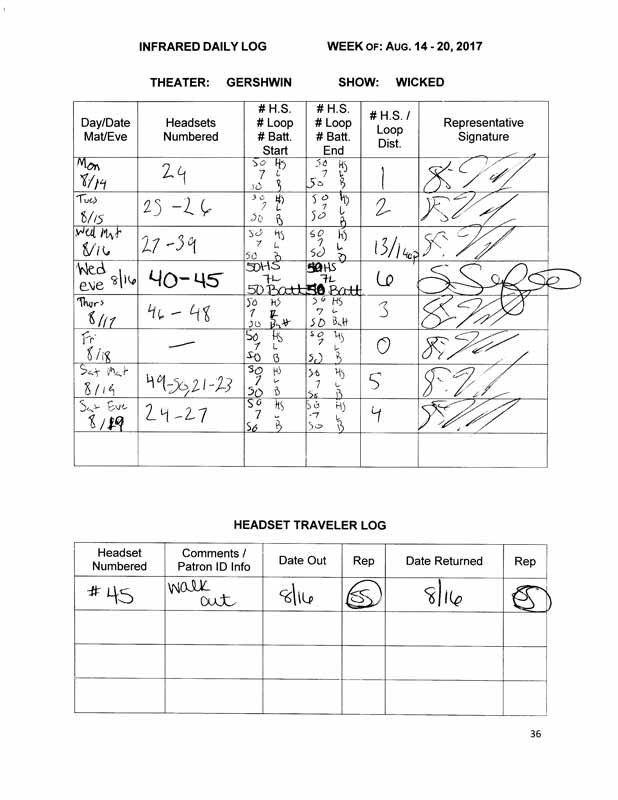 INFRARED DAILY LOG WEEK OF: AUG. 14 - 20, 2017
THEATER: GERSHWIN SHOW: WICKED
Day/Date Mat/Eve
Headsets Numbered
# H.S. # Loop # Batt. Start
# H.S. # Loop # Batt. End
# H.S. / Loop Dist.
Representative Signature
Mon 8/14 24 50 HS 7 L 50 B 50 HS 7 L 50 B 1
Tues 8/15 25-26 50 HS 7 L 50 B 50 HS 7 L 50 B 2
Wed Mat 8/16 27-39 50 HS 7 L 50 B 50 HS 7 L 50 B 13/1
Wed eve 8/16 40-45 50HS 7L 50 Batt 50HS 7L 50 Batt 6
Thurs 8/17 46-48 50 HS 7 L 50 Batt 50 HS 7 L 50 Batt 3
Fri 8/18 — 50 HS 7 L 50 B 50 HS 7 L 50 B 0
Sat Mat 8/19 49-50, 21-23 50 HS 7 L 50 B 50 HS 7 L 50 B 5
Sat Eve 8/19 24-27 50 HS 7 L 50 B 50 HS 7 L 50 B 4
HEADSET TRAVELER LOG
Headset Numbered
Comments / Patron ID Info
Date Out
Rep
Date Returned
Rep
#45 walk out 8/16 SS 8/16 SS
36